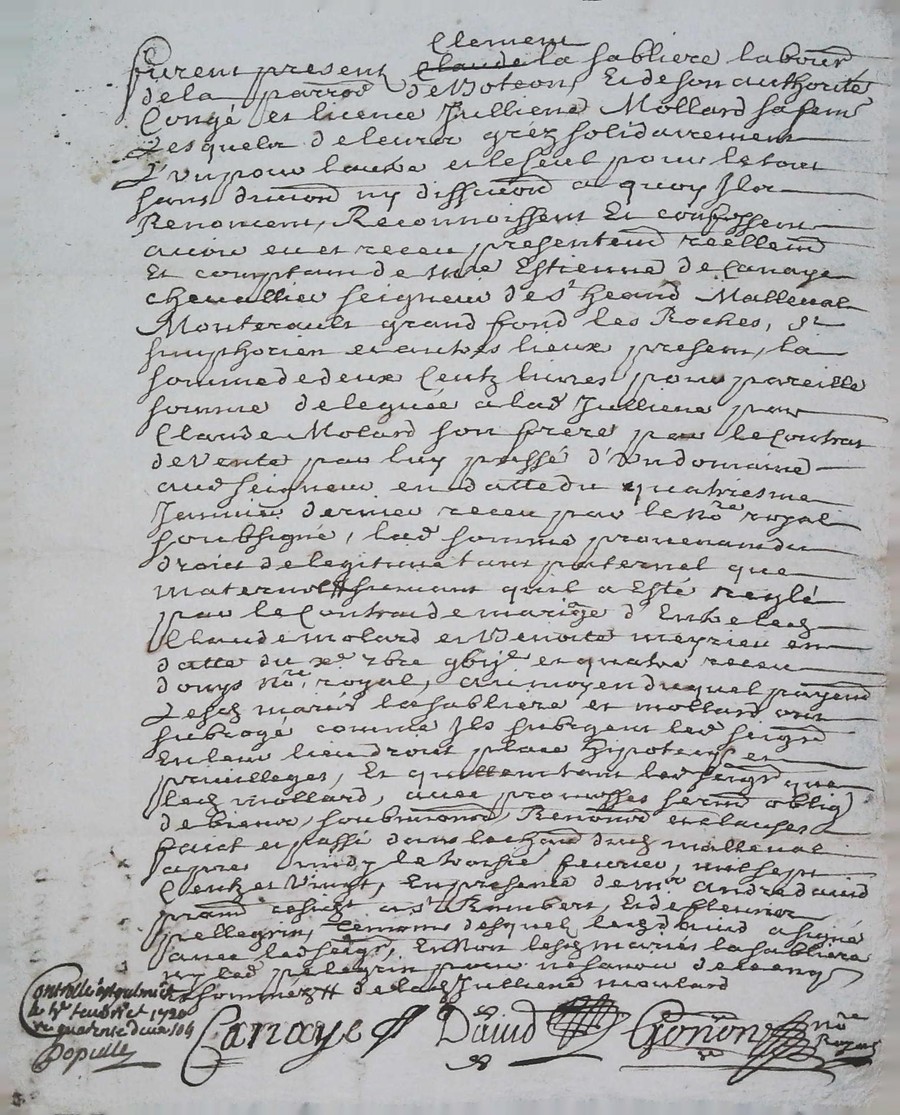 Clement
furent present Claude la sabliere labour
de la parroe de Boteon, Et de son authorité
Congé et licence Jullienne Mollard sa fem
Lesquelz de leurs grez solidairement
L'un pour lautre et le seul pour le tout
sans division ny discution a quoy Ilz
Renoncent, Reconnoissent Et confessent
avoir eu et receu presentemt réellemt
Et comptant de mre Estienne de Canaye
chevallier seigneur de st heand Malleval
Monterault grand fond les Roches, st
simphorien et autres lieux present, la
somme de deux Centz livres pour pareille
somme deleguée a lad Julliene par
Claude Molard son frere par le Contrat
de Vente par luy passé d'un domaine
aud seigneur en datte du quatriesme
Janvier dernier receu par le nore royal
soubsigné, lad somme provenant du
droit de legitime tant paternel que
maternel suivant quil a esté reglé
par le Contrat de mariage d'Entre led
Claude molard et Benoite meyrieu en
datte du xe xbre et quatre receu
donys nore royal, au moyen duquel payemt
Lesd mariés la sabliere et mollard ont
subrogé comme Ils subrogent led seigr
En leur lieu droit place hypoteque et
privilleges, Et quittent tant led seigr que
led mollard, avec promesses serm oblig
de biens, soubmions, Renonon et clauses
faict et passé dans le chaud dud malleval
apres midy le troisie fevrier, mil sept
Centz et Vingt, En presence de mr andre david
pratn residt a st Rambert, Et de fleurie
pellegrin, temoins desquelz led david a signé
avec led seigr, Et non lesd mariés la sabliere
ny led pelegrin pour ne scavoir de ce enq
et sommez de lad Julliene moulard
Controllé
le 4e fevrier 1720

Canaye David Gonon nore
Royal